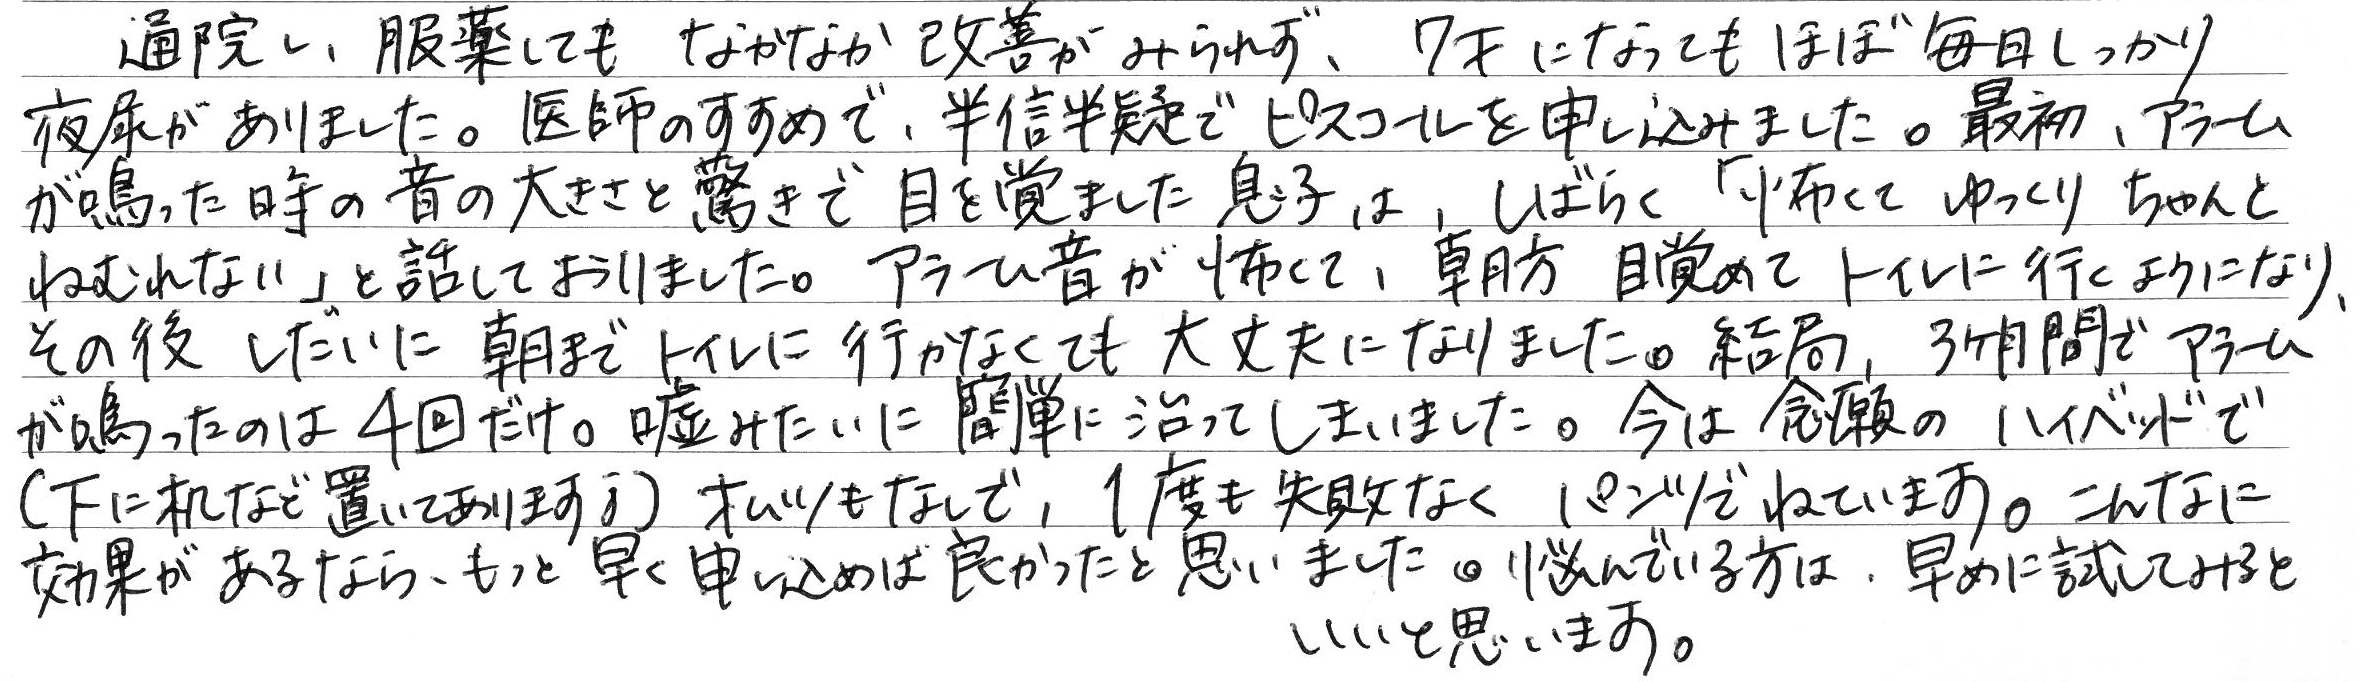 通院し、服薬しても なかなか 改善が みられず、 7才 になっても ほぼ 毎日しっかり
夜尿が ありました。医師のすすめで、半信半疑で ピスコールを申し込みました。最初、アラーム
が鳴った時の音の大きさと驚きで 目を覚ました息子は、しばらく「怖くて ゆっくり ちゃんと
ねむれない」と話しておりました。 アラーム音が 怖くて、朝方 目覚めて トイレに行くようになり、
その後 しだいに 朝まで トイレに 行かなくても 大丈夫になりました。結局、3ヶ月間で アラーム
が鳴ったのは 4回だけ。嘘みたいに 簡単に治ってしまいました。今は 念願の ハイベッドで
(下に机など置いてあります) オムツもなしで、1度も失敗なく パンツでねています。こんなに
効果が あるなら、もっと 早く 申し込めば良かったと思いました。悩んでいる方は、早めに試してみると
いいと思います。